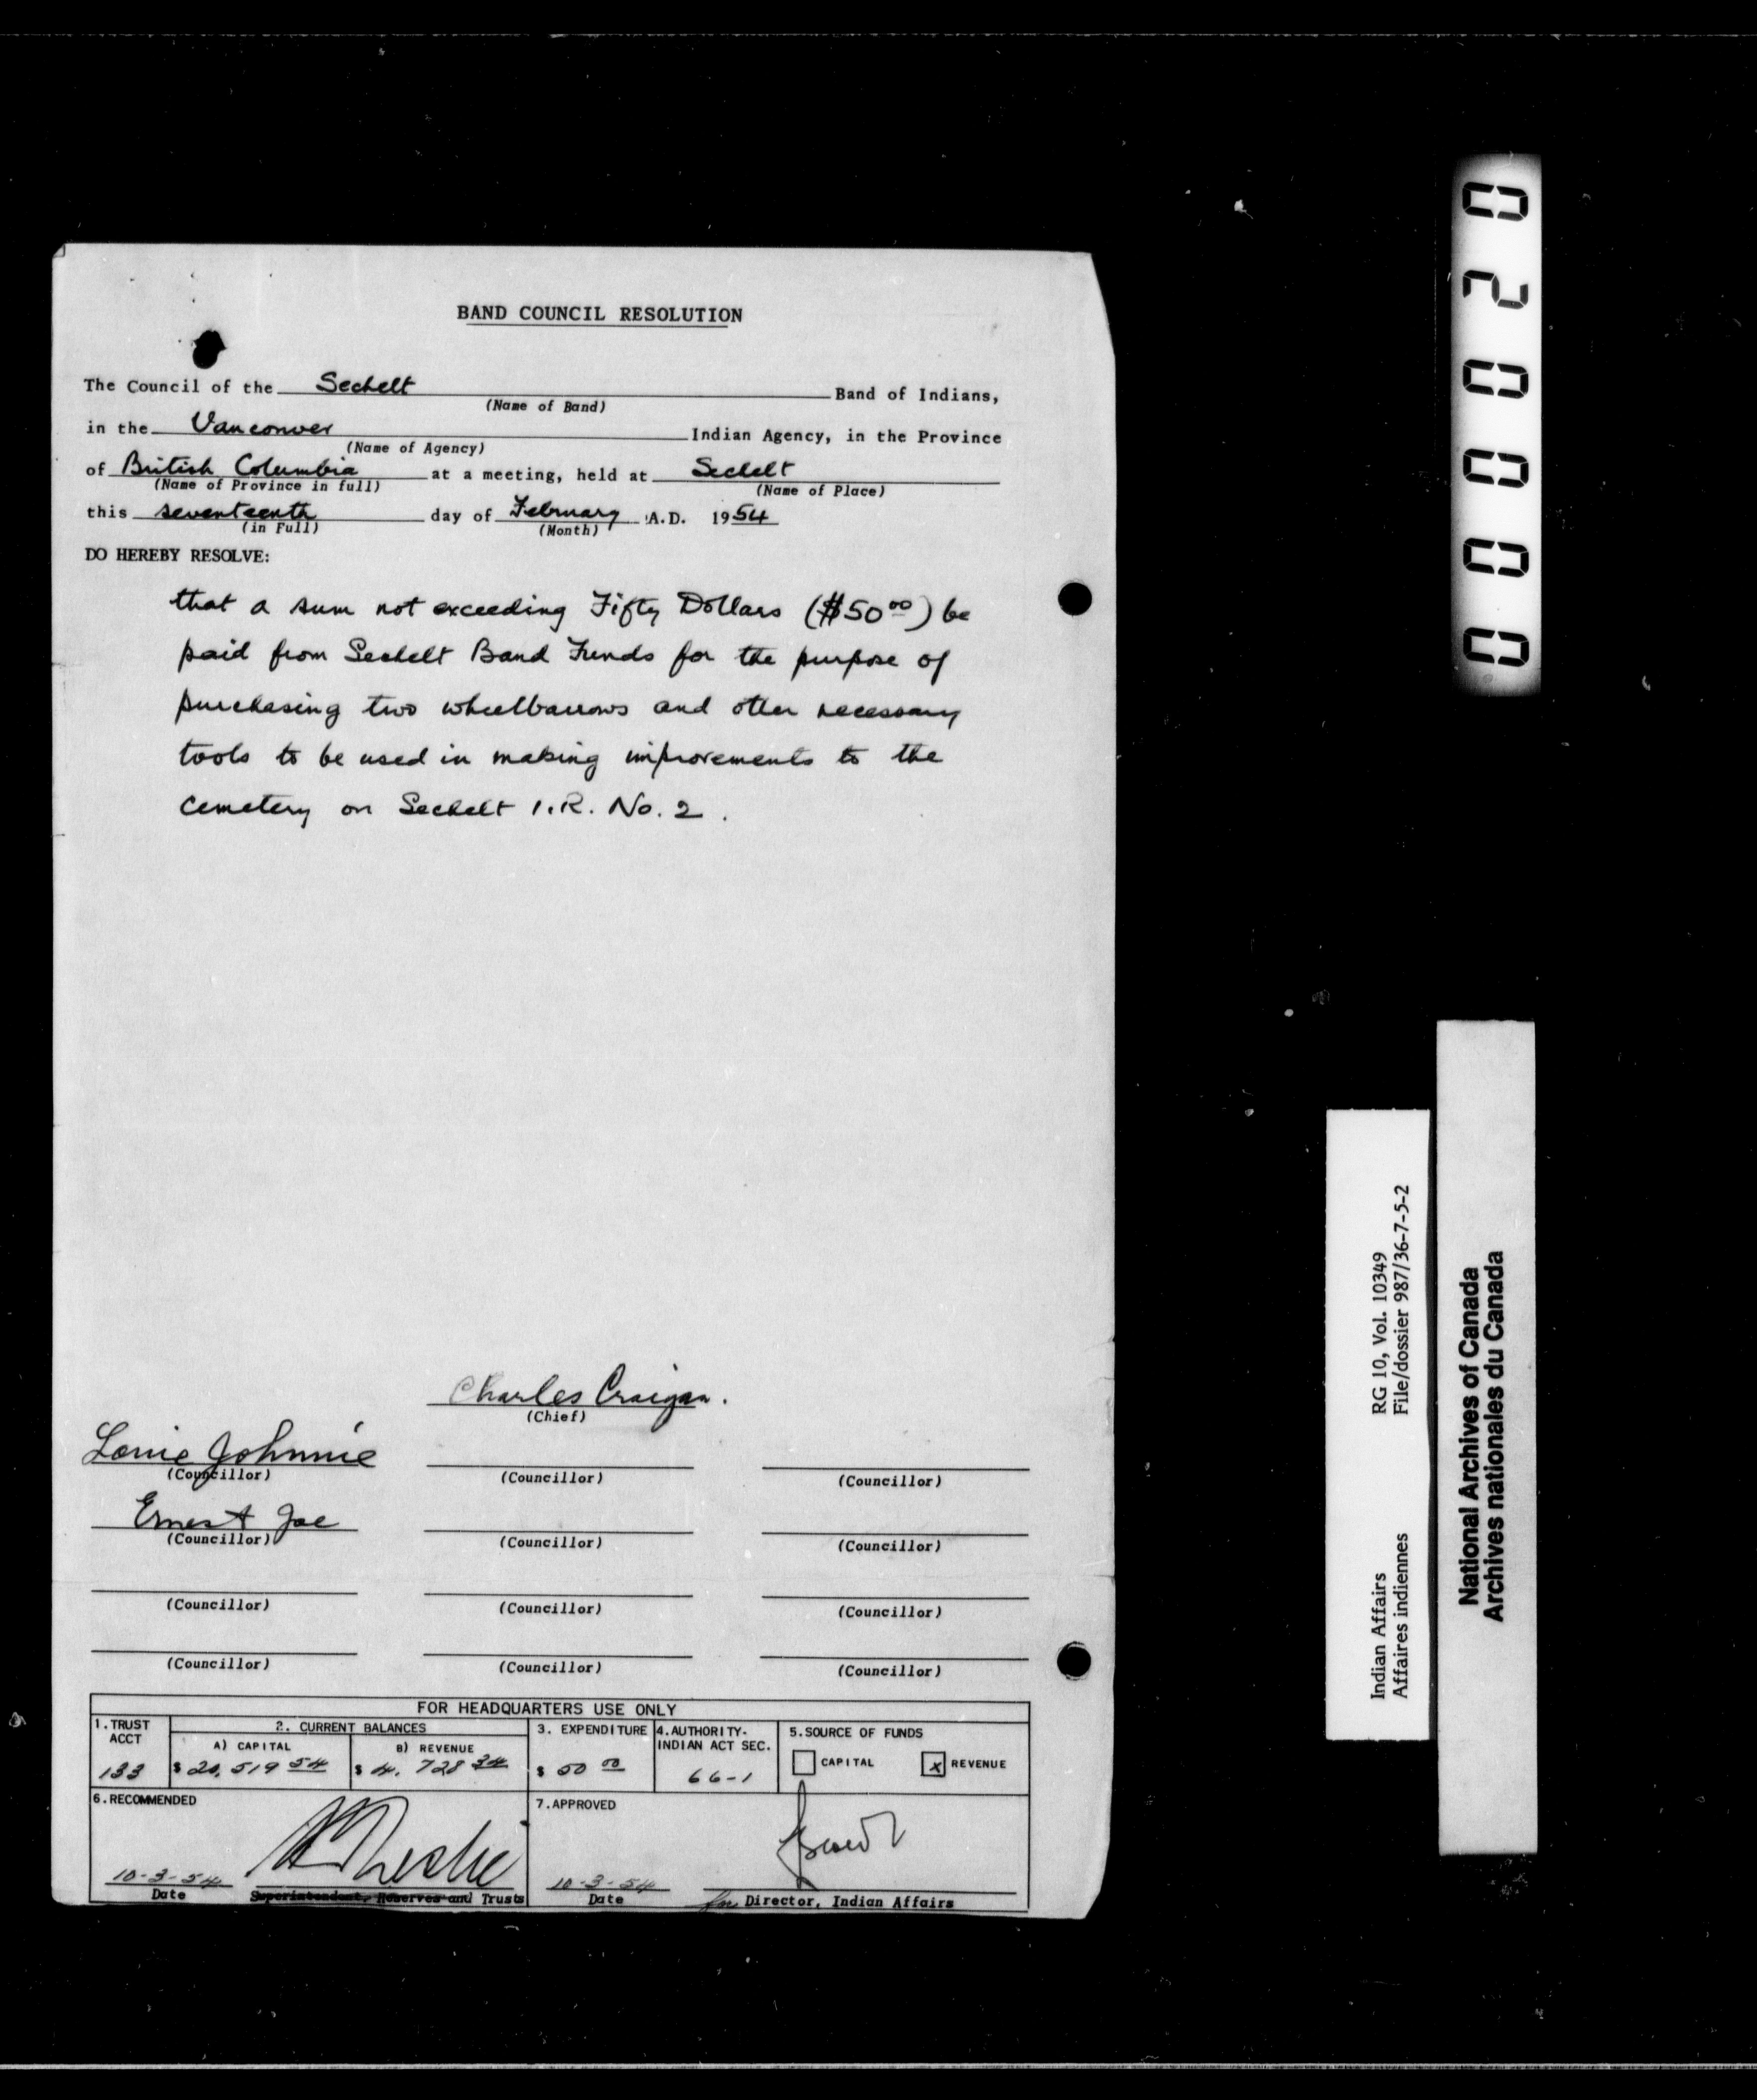 BAND COUNCIL RESOLUTION
The Council of the Sechelt Band of Indians,
(Name of Band)
in the Vancouver Indian Agency, in the Province
(Name of Agency)
of British Columbia at a meeting, held at Sechelt
(Name of Province in full) (Name of Place)
this seventeenth day of February A.D. 1954
(in Full) (Month)
DO HEREBY RESOLVE:
that a sum not exceeding Fifty Dollars ($50 00) be
paid from Sechelt Band Funds for the purpose of
purchasing two wheelbarrows and other necessary
tools to be used in making improvements to the
Cemetery on Sechelt I.R. No. 2.
Charles Craigan.
(Chief)
Louie Johnnie
(Councillor) (Councillor) (Councillor)
Ernest Joe
(Councillor) (Councillor) (Councillor)
(Councillor) (Councillor) (Councillor)
(Councillor) (Councillor) (Councillor)
FOR HEADQUARTERS USE ONLY
1. TRUST ACCT
133
2. CURRENT BALANCES
A) CAPITAL
$ 20,519 54
B) REVENUE
$ 4,728 34
3. EXPENDITURE
$ 50 00
4. AUTHORITY-
INDIAN ACT SEC.
66-1
5. SOURCE OF FUNDS
CAPITAL x REVENUE
6. RECOMMENDED
10-3-54
Date Superintendent, Reserves and Trusts
7. APPROVED
10-3-54
Date for Director, Indian Affairs
000020
RG 10, Vol. 10349
File/dossier 987/36-7-5-2
Indian Affairs
Affaires indiennes
National Archives of Canada
Archives nationales du Canada